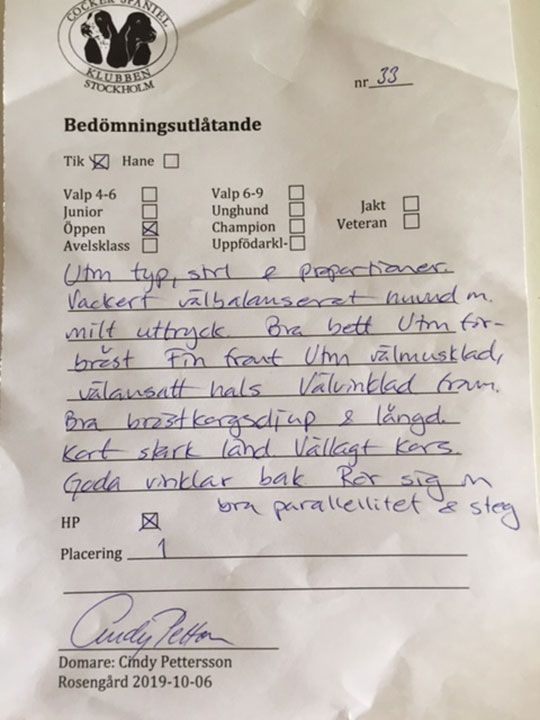 COCKER SPANIEL
KLUBBEN
STOCKHOLM
nr 33
Bedömningsutlåtande
Tik Hane
Valp 4-6 Valp 6-9 Jakt
Junior Unghund Veteran
Öppen Champion
Avelsklass Uppfödarkl-
Utm typ, strl & proportioner.
Vackert välbalanserat huvud m.
milt uttryck. Bra bett Utm för-
bröst Fin front Utm välmusklad,
välansatt hals Välvinklad fram.
Bra bröstkorgsdjup & längd.
Kort stark länd Vällagt kors.
Goda vinklar bak Rör sig m
bra parallellitet & steg
HP
Placering 1
Cindy Petterson
Domare: Cindy Pettersson
Rosengård 2019-10-06